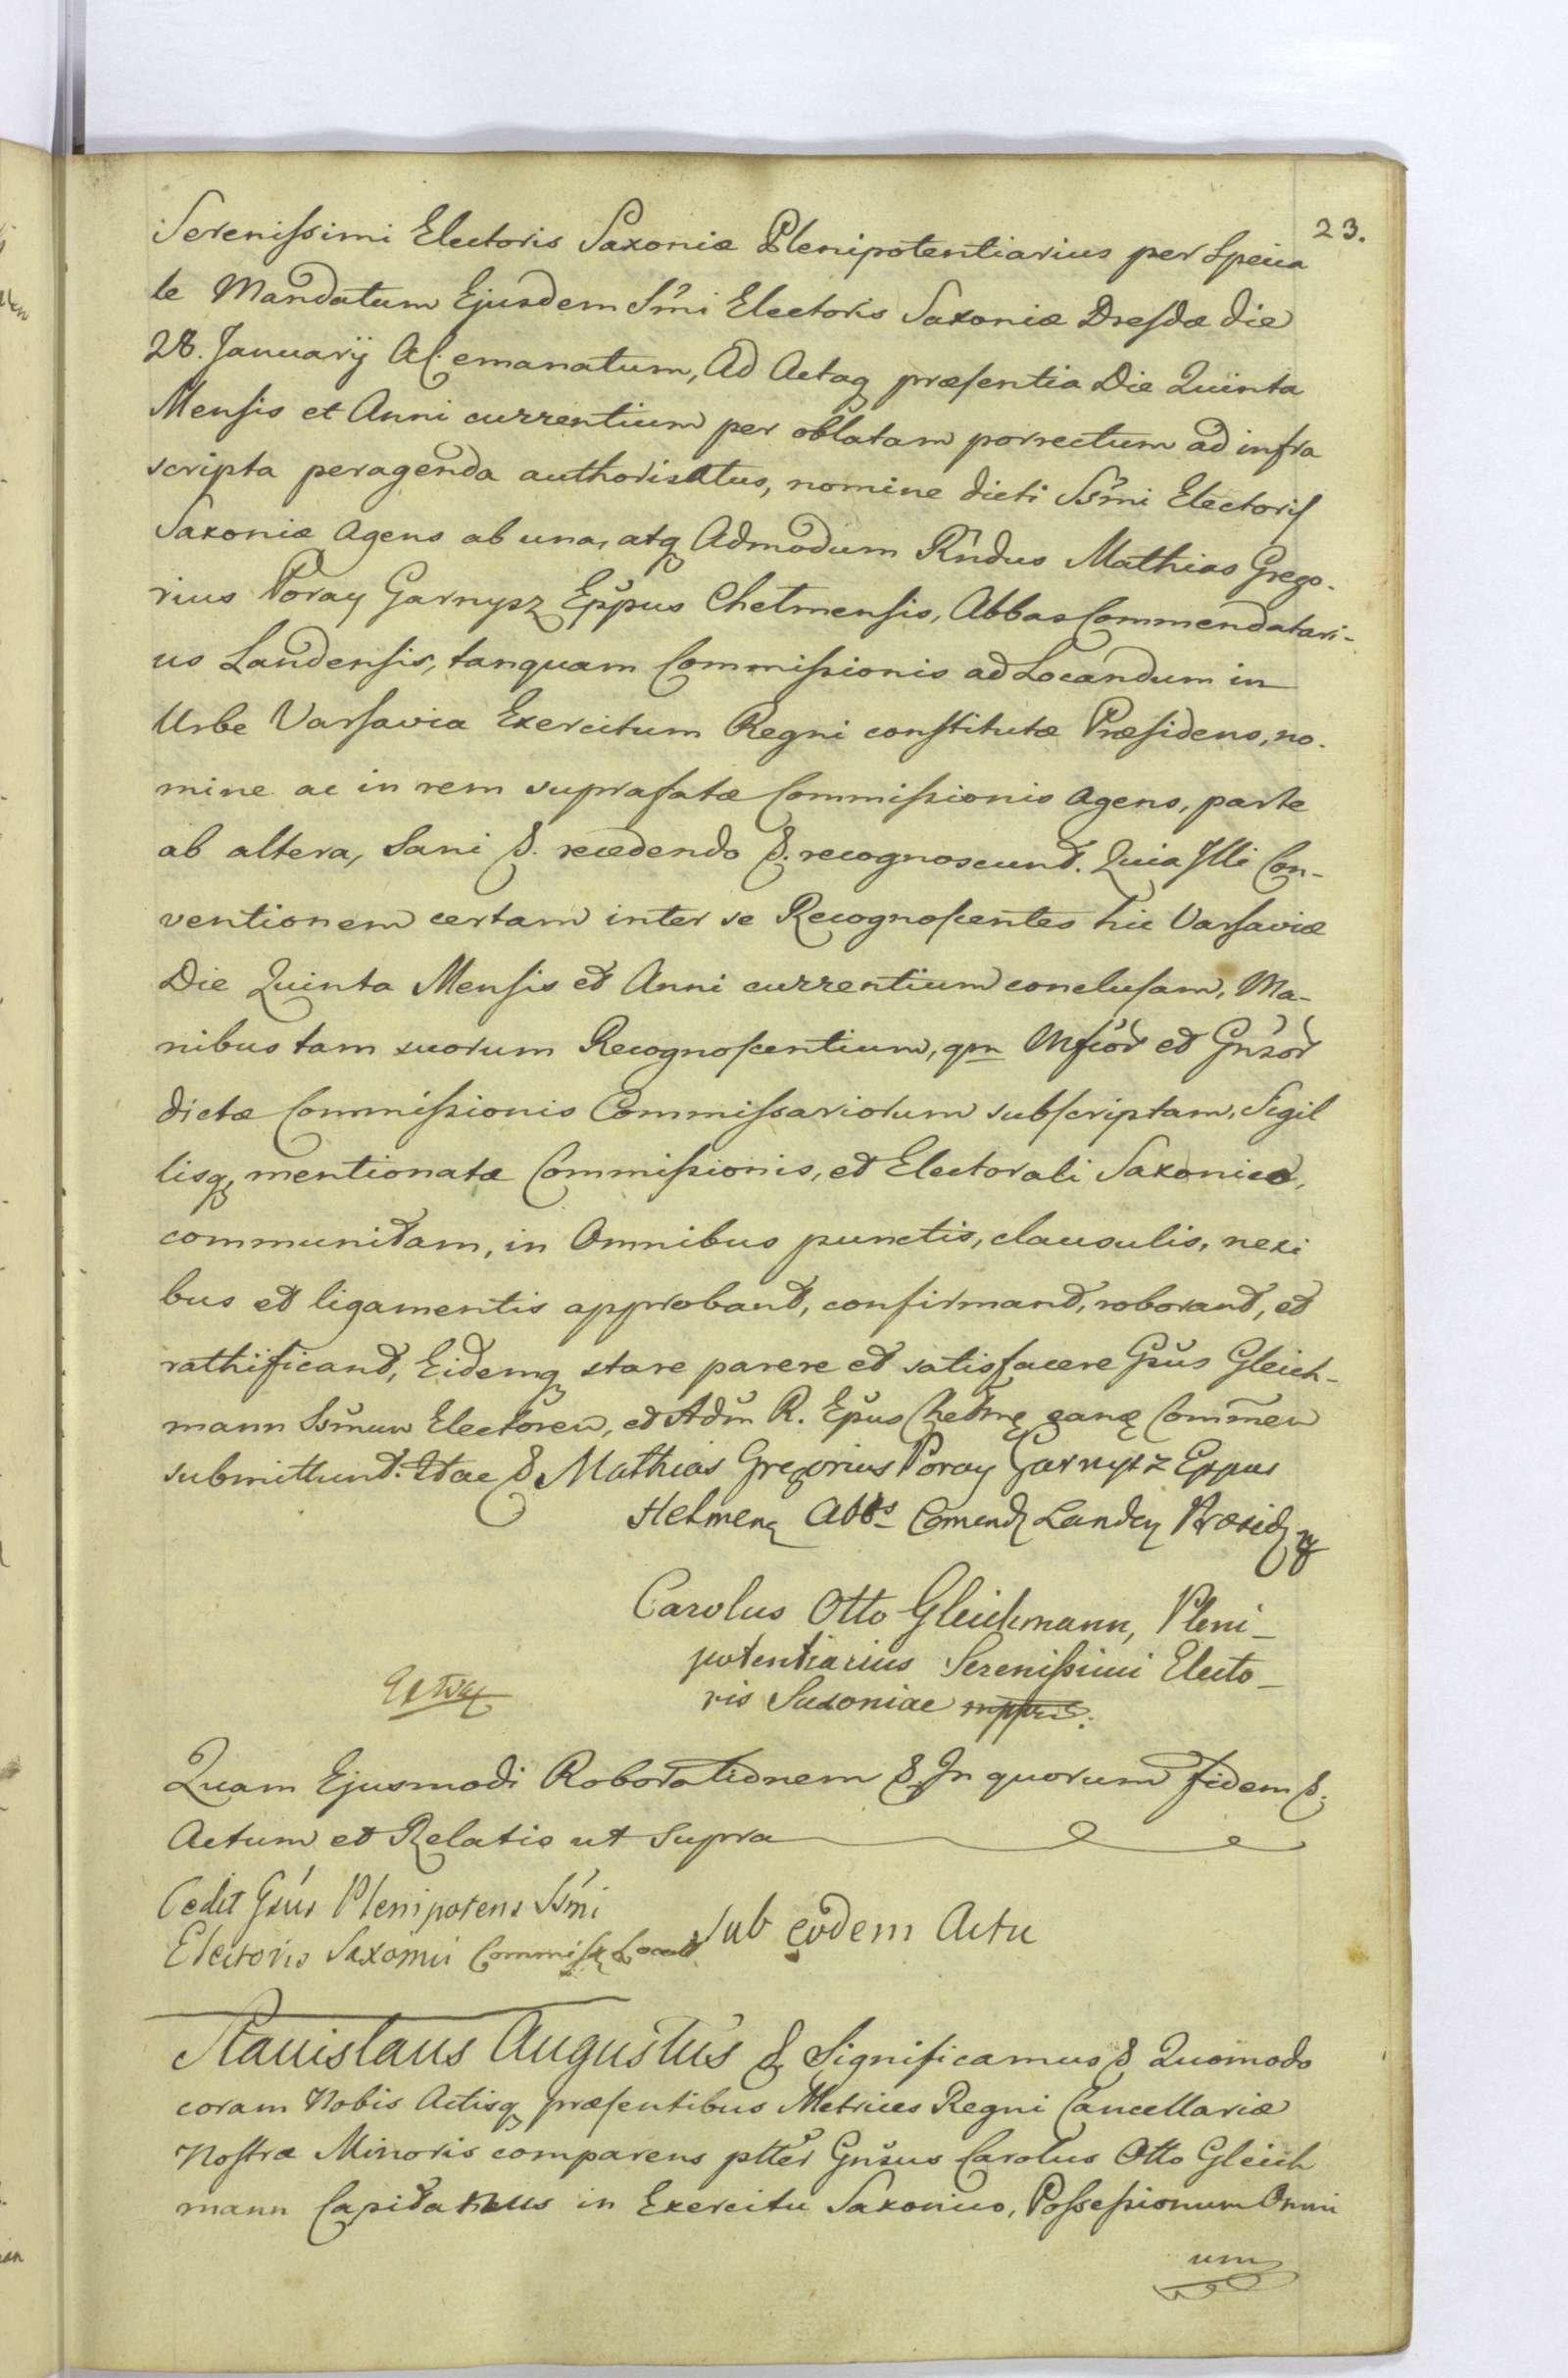 23.
Serenissimi Electoris Saxoniæ Plenipotentiarius per Specia
le Mandatum Ejusdem Smi Electoris Saxoniæ Dresdæ die
28. Januarij A.C. emanatum, Ad Actaq præsentia Die Quinta
Mensis et Anni currentium per oblatam porrectum ad infra
scripta peragenda authorisatus, nomine dicti Ssmi Electoris
Saxoniæ Agens ab una, atq Admodum Rndus Mathias Grego-
rius Poray Garnysz Eppus Chelmensis, Abbas Commendatari-
us Landensis, tanquam Commissionis ad Locandum in
Urbe Varsavia Exercitum Regni constitutæ Præsidens, no-
mine ac in rem suprafatæ Commissionis Agens, parte
ab altera, Sani &. recedendo &. recognoscunt. Quia Illi Con-
ventionem certam inter se Recognoscentes hic Varsaviæ
Die Quinta Mensis et Anni currentium conclusam, Ma-
nibus tam suorum Recognoscentium, qm Mfcor et Gnsor
dictæ Commissionis Commissariorum subscriptam, Sigil
lisq, mentionatæ Commissionis, et Electorali Saxonico,
communitam, in Omnibus punctis, clausulis, nexi
bus et ligamentis approbant, confirmant, roborant, et
rathificant, Eidemq stare parere et satisfacere Gsus Gleich-
mann Ssmum Electorem, et Adm R. Epus Commem
submittunt. Hac & Mathias Gregorius Poray Garnysz Eppus
Helmen Abbs Comend Landen Præsid
Carolus Otto Gleichmann, Pleni-
potentiarius Serenissimi Electo-
ris Saxoniae mppria.
Quam Ejusmodi Roborationem &. In quorum fidem &.
Actum et Relatio ut Supra
Cedit Gsus Plenipotens Ssmi
Electoris Saxonii Commiss Locand
Sub eodem Actu
Stanislaus Augustus & Significamus & Quomodo
coram Nobis Actisq præsentibus Metrices Regni Cancellariæ
Nostræ Minoris comparens ptter Gnsus Carolus Otto Gleich
mann Capitaneus in Exercitu Saxonico, Possessionum Omni
um